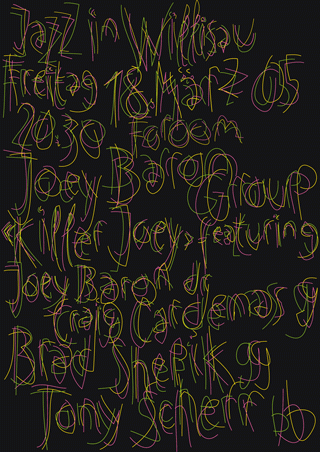 Jazz in Willisau
Freitag 18. März 05
20.30 Foroom
Joey Baron Group
«Killer Joey» featuring
Joey Baron dr
Craig Cardemas g
Brad Shepik g
Tony Scherr b